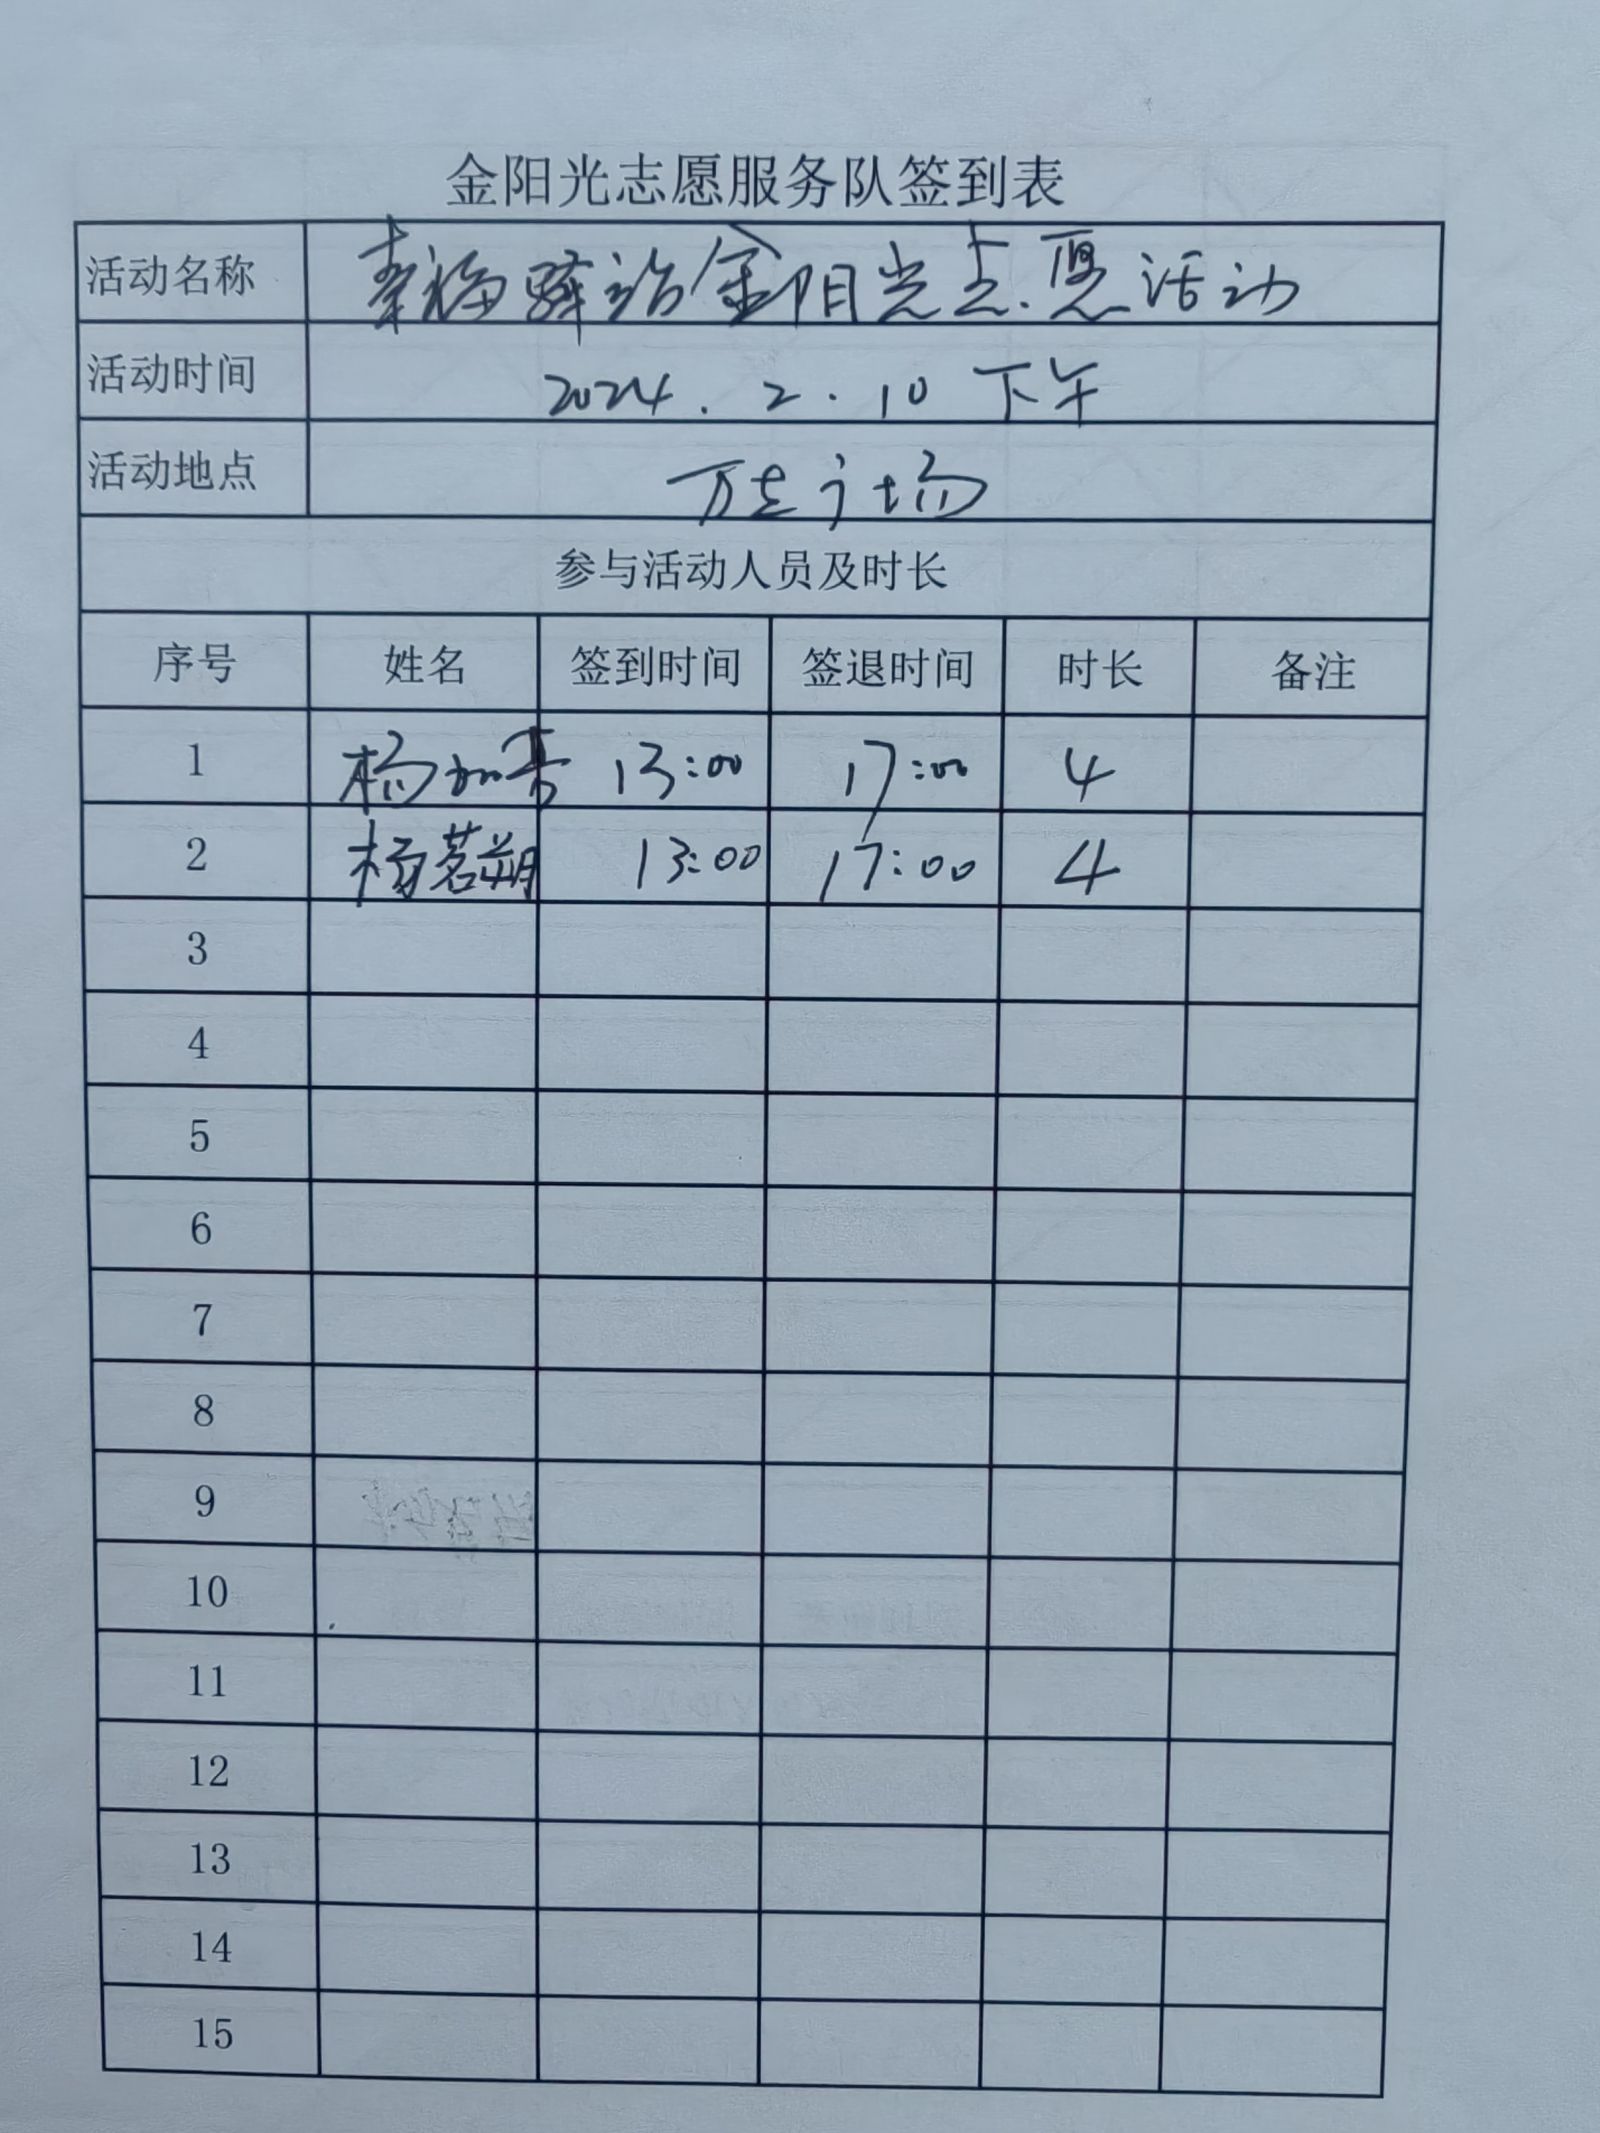 金阳光志愿服务队签到表
活动名称 驿站金阳光志愿活动
活动时间 2024.2.10 下午
活动地点 万达广场
参与活动人员及时长
序号 姓名 签到时间 签退时间 时长 备注
1 杨 13:00 17:00 4
2 杨茗朔 13:00 17:00 4
3
4
5
6
7
8
9
10
11
12
13
14
15